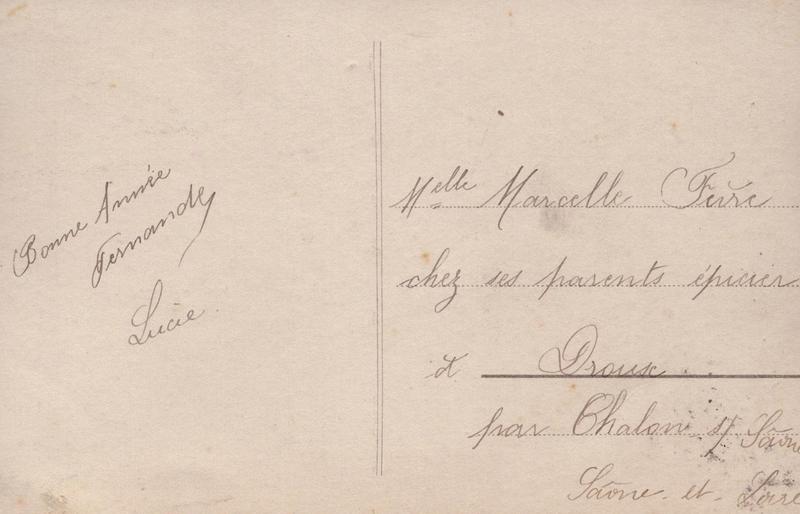 Bonne Année
Fernande
Lucie
Melle Marcelle Fèvre
chez ses parents épicier
à Droux
par Chalon s/ Saône
Saône-et-Loire